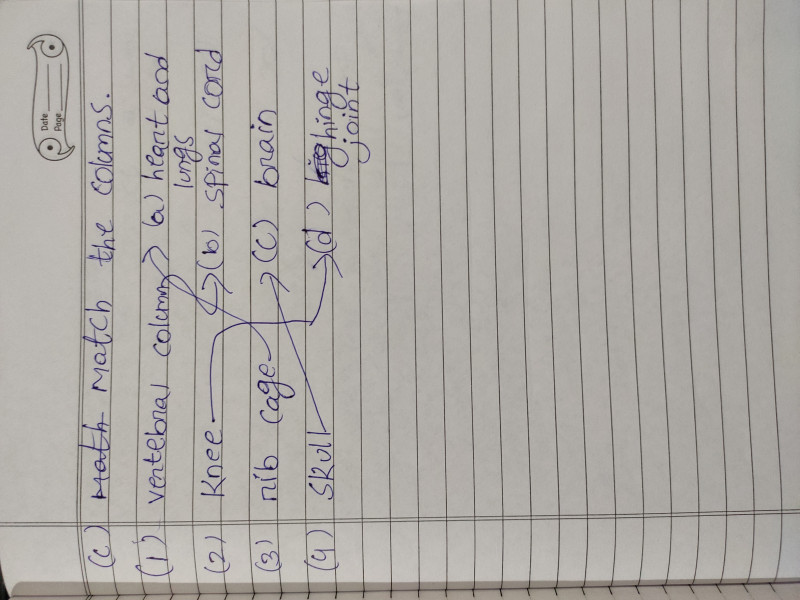 Date
Page
(c) Math Match the columns.
(1) vertebral column (a) heart and
lungs
(2) Knee (b) spinal cord
(3) rib cage (c) brain
(4) Skull (d) hinge
joint